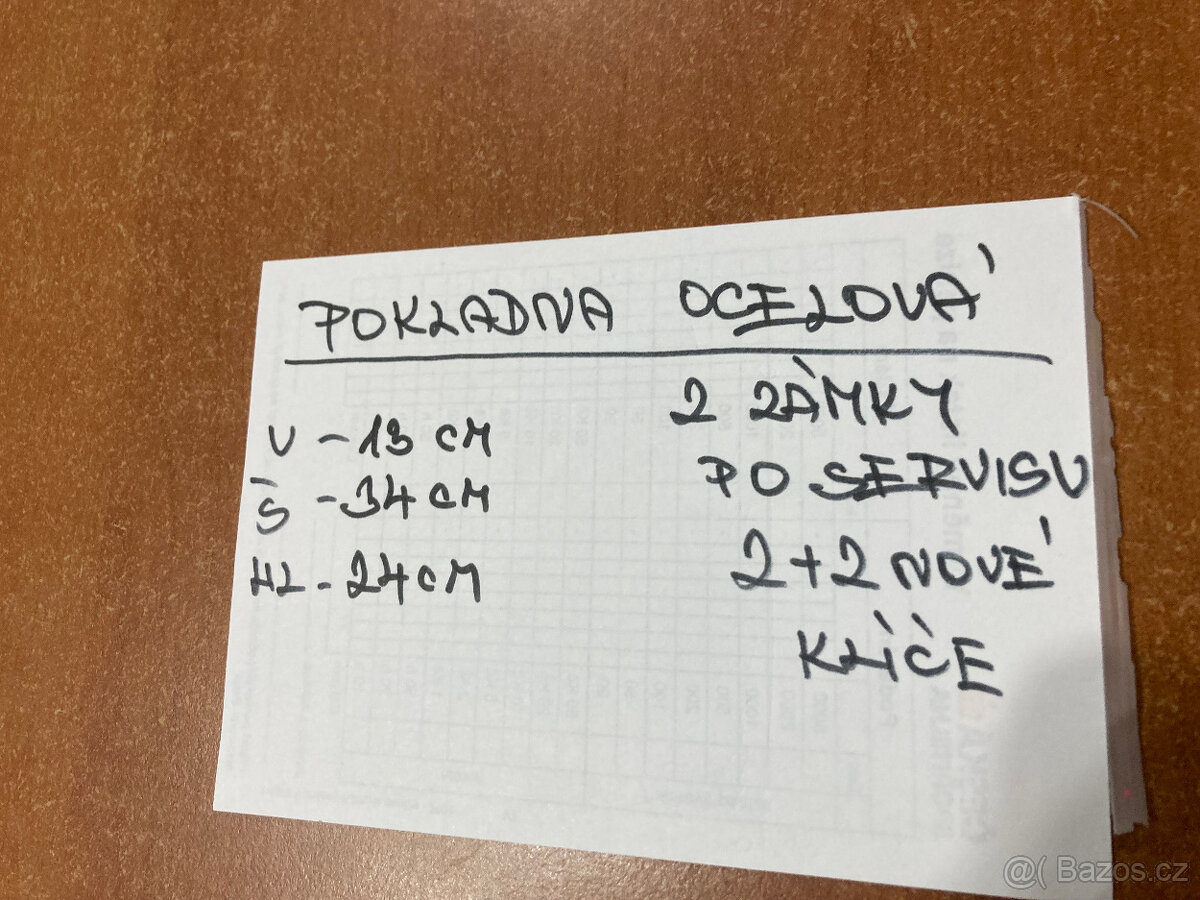 POKLADNA OCELOVÁ
V - 13 CM
Š - 34 CM
HL - 24 CM
2 ZÁMKY
PO SERVISU
2+2 NOVÉ
KLÍČE
@( Bazos.cz